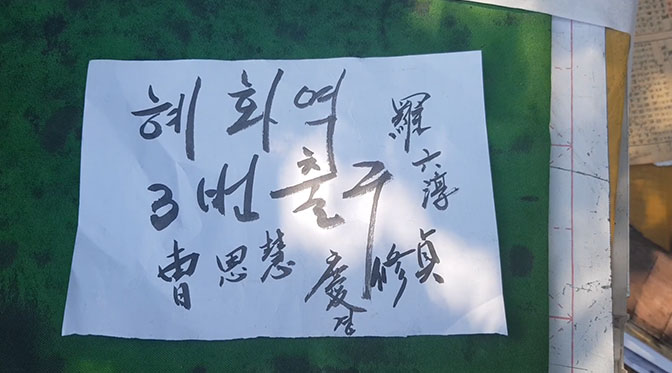 혜화역
3번출구
羅六淳
曺思慧
慶修貞
경